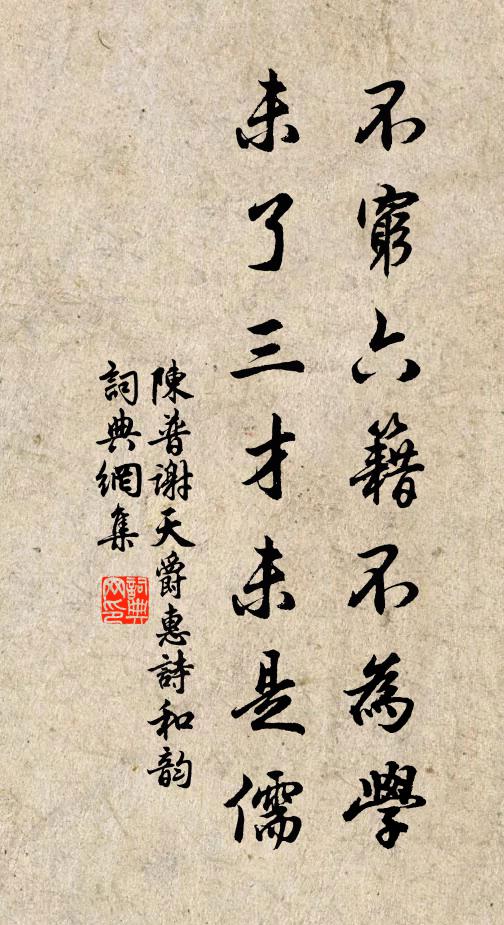 不窮六籍不為學
未了三才未是儒
陳普謝天爵惠詩和韵
詞典網集
詞典网印